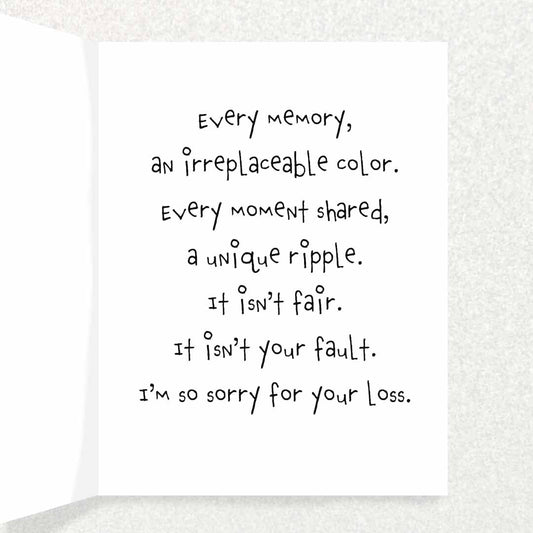 Every memory,
an irreplaceable color.
Every moment shared,
a unique ripple.
It isn't fair.
It isn't your fault.
I'm so sorry for your loss.